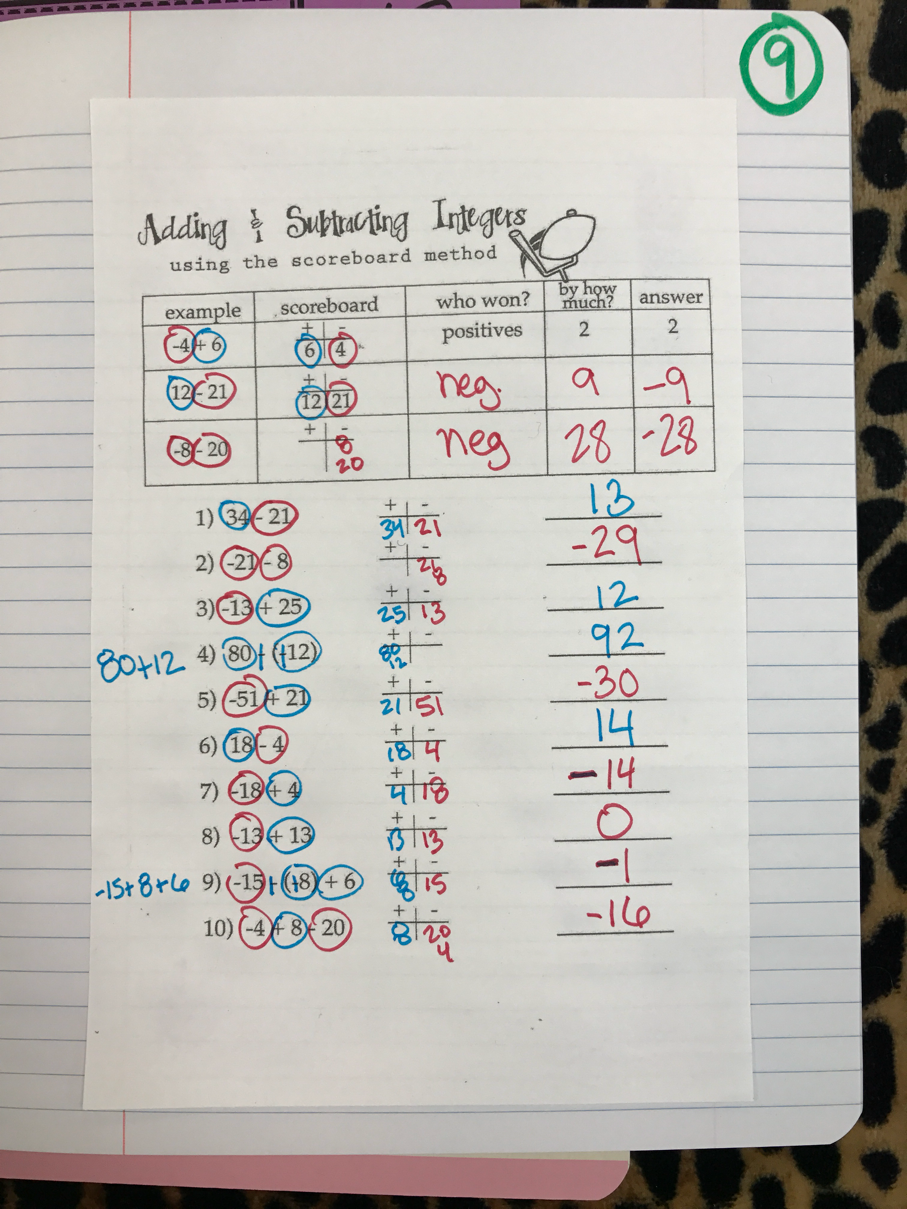 9
Adding & Subtracting Integers
using the scoreboard method
example scoreboard who won? by how much? answer
-4 + 6 + - 6 4 positives 2 2
12 - 21 + - 12 21 neg. 9 -9
-8 - 20 + - 8 20 neg 28 -28
1) 34 - 21 + - 34 21 13
2) -21 - 8 + - 21 8 -29
3) -13 + 25 + - 25 13 12
80+12 4) 80 + (+12) + - 80 12 92
5) -51 + 21 + - 21 51 -30
6) 18 - 4 + - 18 4 14
7) -18 + 4 + - 4 18 -14
8) -13 + 13 + - 13 13 0
-15+8+6 9) -15 + (+8) + 6 + - 6 8 15 -1
10) -4 + 8 - 20 + - 8 20 4 -16